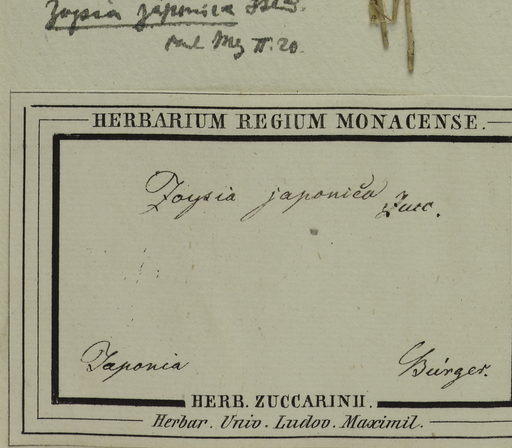 Zoysia japonica Steud.
Mez
HERBARIUM REGIUM MONACENSE.
Zoysia japonica Zucc.
Japonia
Bürger.
HERB. ZUCCARINII.
Herbar. Univ. Ludov. Maximil.